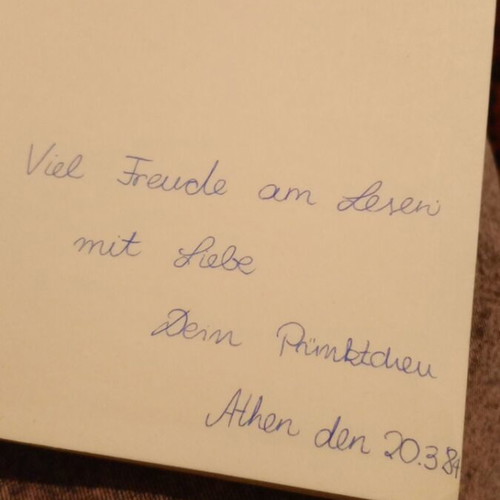 Viel Freude am Lesen
mit Liebe
Dein Pünktchen
Athen den 20.3.84